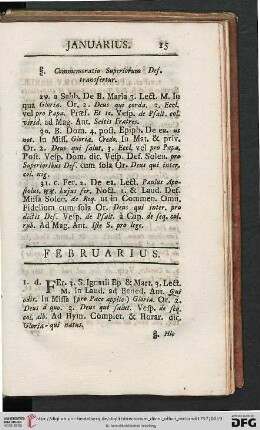 JANUARIUS. 15
§. Commemoratio Superiorum Def.
transfertur.
29. a Sabb. De B. Maria 3. Lect. M. In
qua Gloria. Or. 2. Deus qui corda. 3. Eccl.
vel pro Papa. Præf. Et te. Vesp. de Psalt. col.
virid. ad Mag. Ant. Scitis Fratres.
30. B. Dom. 4. post Epiph. De ea. ut
not. In Miss. Gloria. Credo. In Mat. & priv.
Or. 2. Deus qui salut. 3. Eccl. vel pro Papa.
Post. Vesp. Dom. dic. Vesp. Def. Solen. pro
Superioribus Def. cum sola Or. Deus qui inter.
col. nig.
31. c. Fer. 2. De ea. Lect. Paulus Apo-
stolus, hujus fer. Noct. 1. & Laud. Def.
Missa Solen. de Req. ut in Commem. Omn.
Fidelium cum sola Or. Deus qui inter, pro
dictis Def. Vesp. de Psalt. a Cap. de seq. col.
rub. Ad Mag. Ant. Iste S. pro lege.
FEBRUARIUS.
1. d. FEr. 3. S. Ignatii Ep. & Mart. 3. Lect.
M. In Laud. ad Bened. Ant. Qui
odit. In Missa (pro Pace applic.) Gloria. Or. 2.
Deus a quo. 3. Deus qui salut. Vesp. de seq.
col. alb. Ad Hymn. Complet. & Horar. dic.
Gloria - qui natus.
§. Hic
UNIVERSITÄTS-
BIBLIOTHEK
HEIDELBERG
DFG